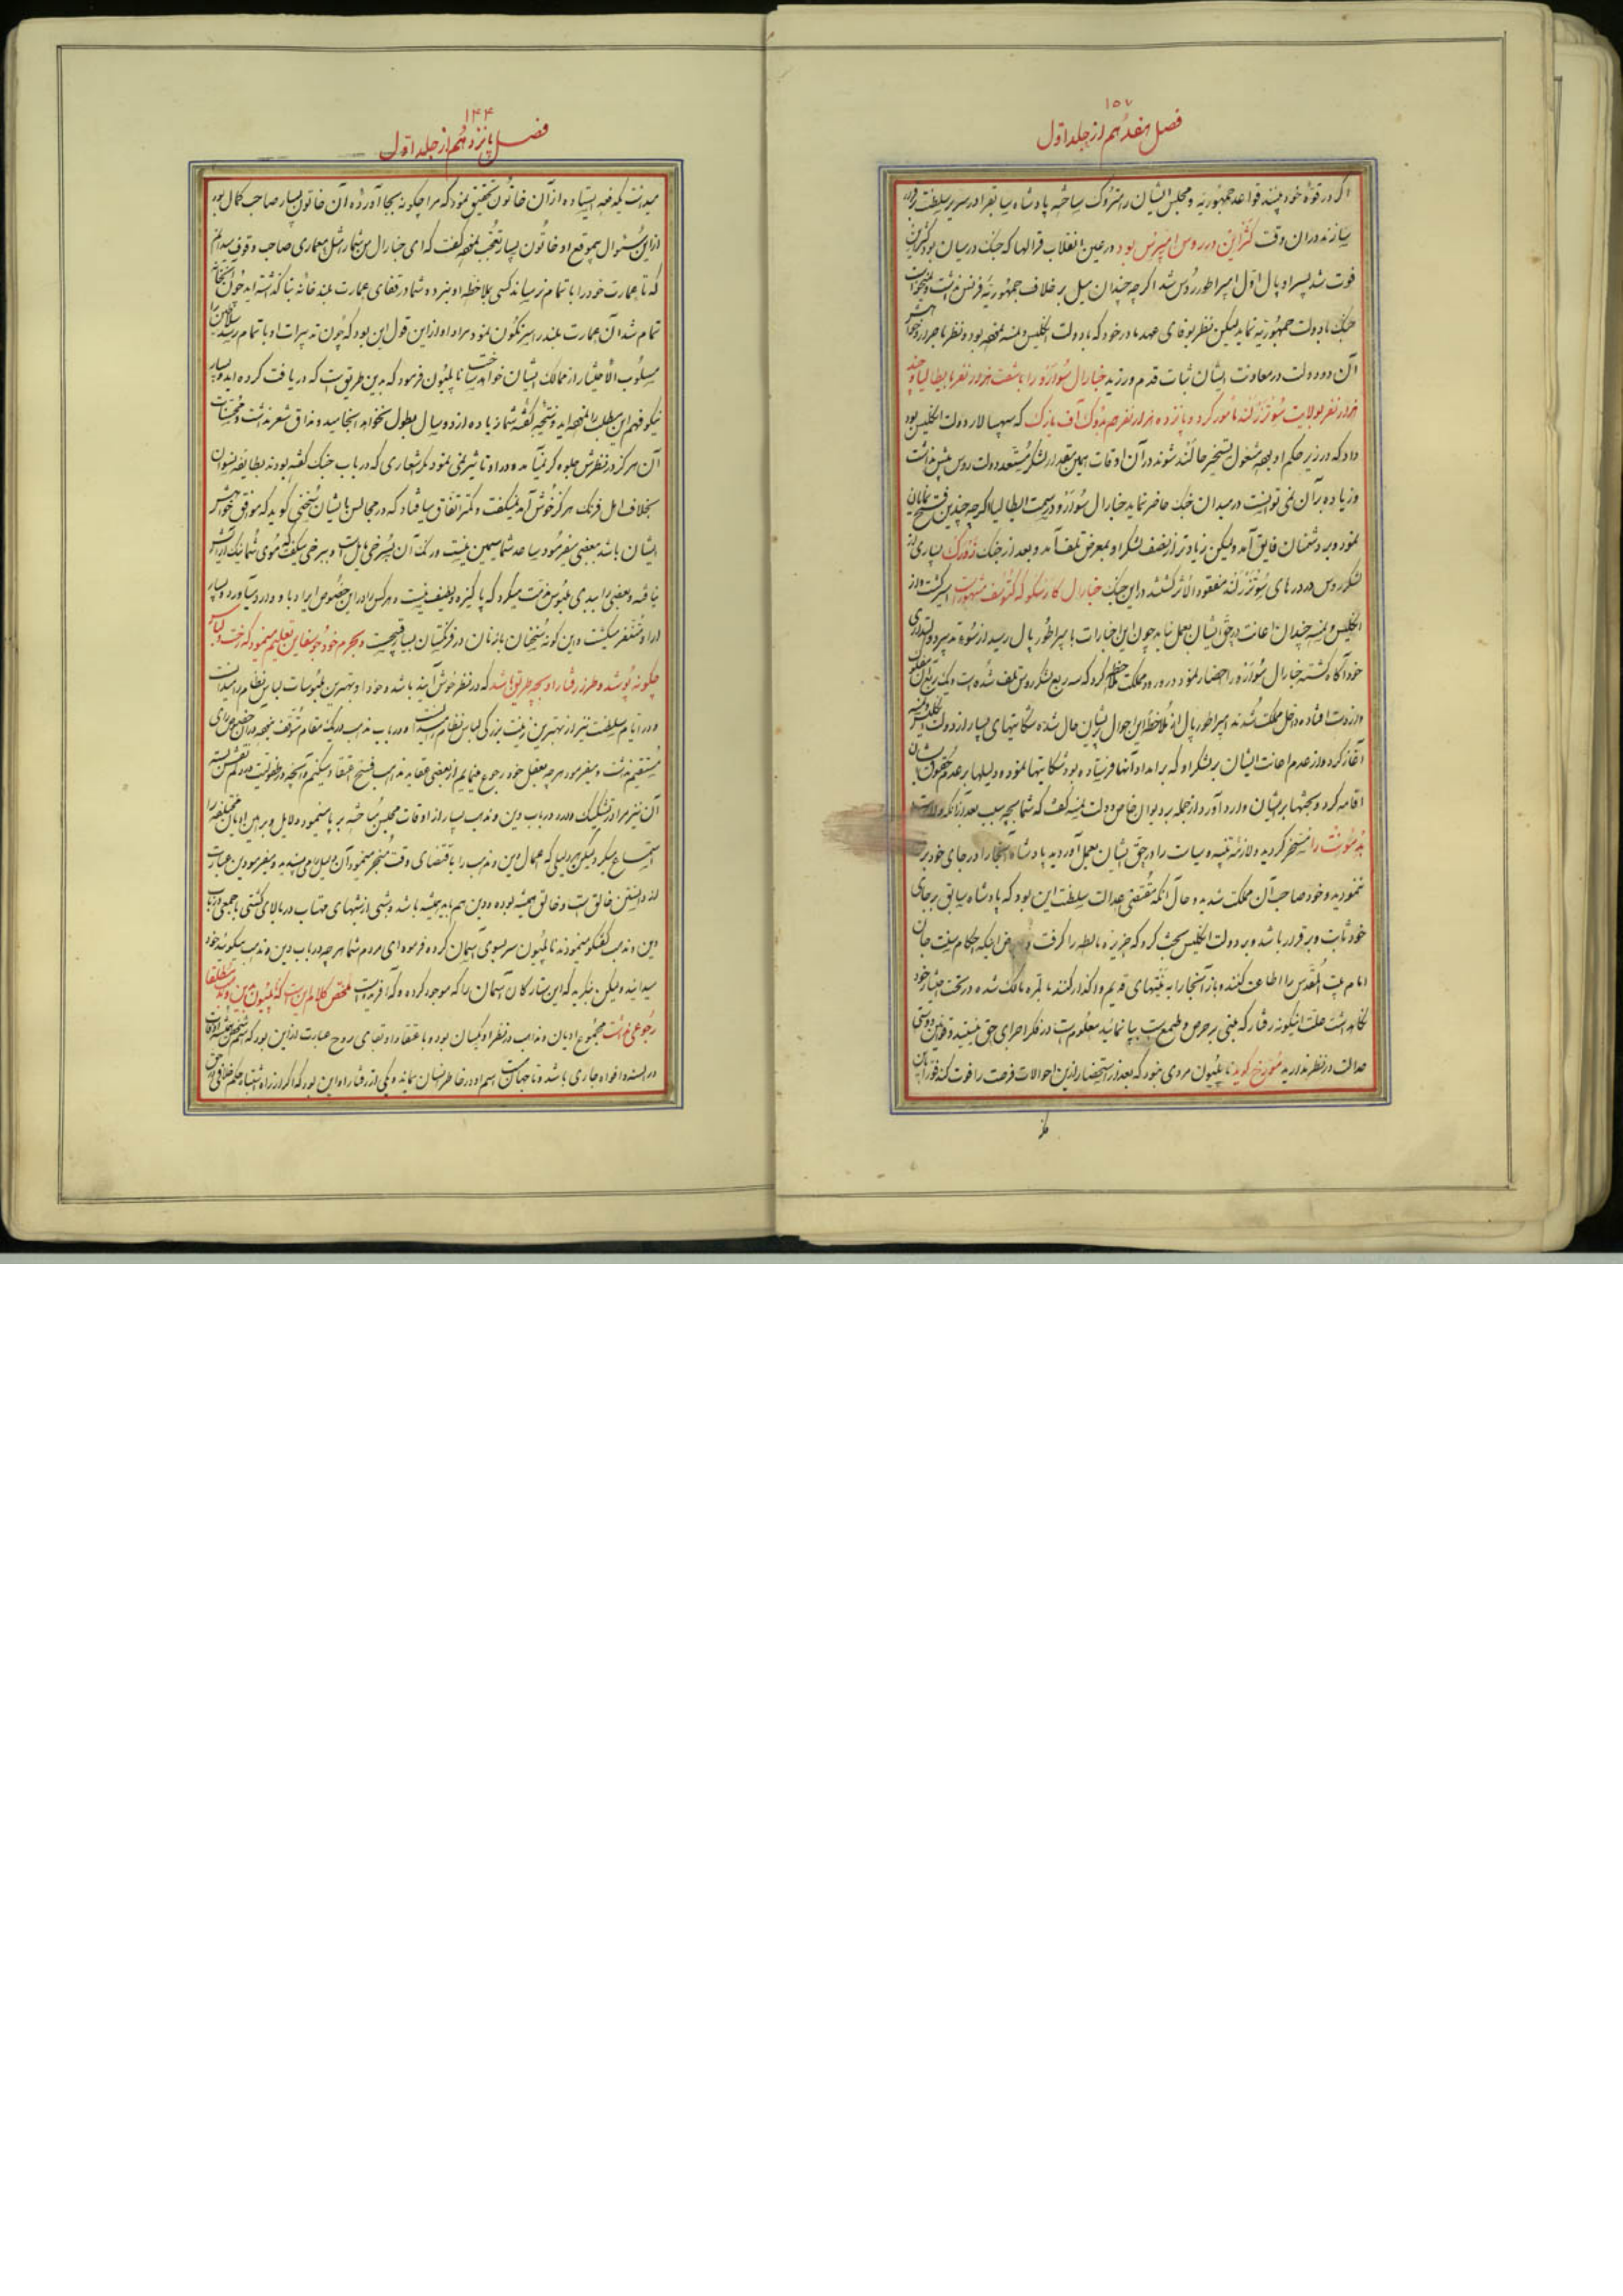 ۱۵۷
فصل هفدهم از جلد اول
اگر در قوهٔ خود بینند قواعد جمهوریه و مجلس ایشان را متروک ساخته پادشاه سابق را در سریر سلطنت برقرار
سازند در آن وقت کثراین در روس امپرس بود در عین انقلاب قرالها که جنک در میان بود کثراین
فوت شد پسر او پال اول امپراطور روس شد اگرچه چندان میل بر خلاف جمهوریه فرنس نداشت و نمیخواست
جنک با دولت جمهوریه نماید لیکن نظر بوفای عهد مادر خود که با دولت انکلیس و نمسه نموده بود و نظر باصرار و خواهش
آن دو دولت در معاونت ایشان ثبات قدم ورزید جنارال سوارو را با شصت هزار نفر بایطالیا و چند
هزار نفر بولایت سوئزرلند مامور کرد و پانزده هزار نفر هم بدوک آف یارک که سپهسالار دولت انکلیس بود
داد که در زیر حکم او بوده مشغول تسخیر هالند شوند در آن اوقات همین مقدار لشکر مستعد دولت روس بیش نداشت
و زیاده بر آن نمی توانست در میدان جنک حاضر نماید جنارال سوارو در سمت ایطالیا اگرچه چندین فتح نمایان
نمود و بر دشمنان فایق آمد ولیکن زیادتر از نصف لشکر او بمعرض تلف آمد و بعد از جنک زورک بسیاری از
لشکر روس در دره های سوئزرلند مفقود الاثر کشتند در این جنک جنارال کارسکو که کتوسف مشهور است اسیر کشت و از
انکلیس و نمسه چندان اعانت در حق ایشان بعمل نیامد چون این اخبارات بامپراطور پال رسید از سوء تدبیر دولتداری
خود آگاه کشته جنارال سوارو را احضار نمود در ورود مملکت ملاحظه کرد که سه ربع لشکر روس تلف شده است و یک ربع آن مفلوک
و از دست افتاده داخل مملکت شدند امپراطور پال از ملاحظهٔ این احوال پریشان حال شده شکایتهای بسیار از دولت انکلیس و نمسه
آغاز کرده و از عدم اعانت ایشان بر لشکر او که بر امداد آنها فرستاده بود شکایتها نموده و دلیلها بر عدم حقوق ایشان
اقامه کرد و بحثها بر ایشان وارد آورد از جمله بر دیوان خاص دولت نمسه گفت که شما بچه سبب بعد از آنکه ولایت
پدمونت را مسخر کردید و لازمه تنبیه و سیاست را در حق ایشان بعمل آوردید پادشاه آنجا را در جای خود برقرار
ننمودید و خود صاحب آن مملکت شدید و حال آنکه مقتضی عدالت سلطنت این بود که پادشاه سابق بر جای
خود ثابت و برقرار باشد و بر دولت انکلیس بحث کرد که جزیره مالطه را کرفت و عوض اینکه احکام سنت جان
امام بیت المقدس را اطاعت کنند و باز آنجا را به هیئتهای قدیم واگذار کنند بالمره مالک شده در تحت اختیار خود
نگاه داشت علت اینگونه رفتار که مبنی بر حرص و طمع است بیان نمائید معلوم است در فکر اجرای حق نیستید و قوانین دوستی
عدالت در نظر ندارید مورخ گوید ناپلیون مردی نبود که بعد از استحضار از این احوالات فرصت را فوت کند فوراً بان
۱۴۴
فصل پانزدهم از جلد اول
میدانست یکدفعه ایستاده از آن خاتون تحقیق نمود که مرا چگونه بجا آوردهٔ آن خاتون بسیار صاحب کمال بود
از این سئوال بیموقع او خاتون بسیار تعجب نموده گفت که ای جنارال من شما را مثل معماری صاحب وقوف میدانم
که تا عمارت خود را باتمام نرساند کسی بملاحظهٔ او نبرده شما در قفای عمارت بلند خانه بنا گذاشته اید چون آنخانه
تمام شد آن عمارت بلند را سرنگون نمود مراد او از این قول این بود که چون تدبیرات او باتمام رسید سلاطین را
مسلوب الاختیار از ممالک ایشان خواهد ساخت ناپلیون فرمود که بدین طریق است که دریافت کرده اید و بسیار
نیکو فهم این مطلب را نموده اید و نتیجهٔ گفتهٔ شما زیاده از دو سال بطول نخواهد انجامید و مذاق شعر نداشت و محسنات
آن هرگز در نظرش جلوه گر نمی آمد و در او تاثیر نمی نمود مگر اشعاری که در باب جنک گفته بودند بطایفه نسوان
بخلاف اهل فرنک هرگز خوش آمد نمیگفت و کمتر اتفاق می افتاد که در مجالس بایشان سخنی گوید که موافق خواهش
ایشان باشد ببعضی میفرمود ساعد شما سیمین نیست و رنگ آن بسرخی مایل است و ببرخی میگفت که موی شما نیک آرایش
نیافته و بعضی را ببدی ملبوس مذمت میکرد که پاکیزه و لطیف نیست و هر کس را در این خصوص ایراد با و وارد میآورد و بسیار
از او متنفر میگشت و این گونه سخنان بازنان در فرنگستان بسیار قبیح است و بحرم خود جوسفاین تعلیم مینمود که رخت و لباس
چگونه پوشد و طرز رفتار او بچه طریق باشد که در نظر خوش آیند باشد و خود او بهترین ملبوسات لباس نظام را میدانست
و در ایام سلطنت نیز از بهترین زینت بزرگی لباس نظام را میدانست و در باب مذهب در یک مقام متوقف نبوده در آن خصوص رای
مستقیم نداشت و میفرمود هر چه بعقل خود رجوع مینمایم از بعضی عقاید مذاهب فسخ اعتقاد میکنم و آنچه در طفولیت در دلم نقش بسته
آن نیز مرا در تشکیک دارد در باب دین و مذهب بسیار از اوقات مجلس مباحثه بر پا مینمود و دلایل و براهین ادیان مختلفه را
استماع میکرد لیکن هر دلیلی که اعمال دین و مذهب را باقتضای وقت منجر مینمود آن دلیل را می پسندید و میفرمود دین عبارت
از دانستن خالق است و خالق همیشه بوده و دین هم باید همیشه باشد و شبی از شبهای مهتاب در بالای کشتی با جمعی در باب
دین و مذهب گفتگو مینمودند ناپلیون سر بسوی آسمان کرده فرمود ای مردم شما هر چه در باب دین و مذهب میگوئید خود
میدانید ولیکن بنگرید که این ستارگان آسمان را که موجود کرده و که آفریده است ملخص کلام این است که ناپلیون بدین و مذهب مطلقا
رجوعی نداشت مجموع ادیان و مذاهب در نظر او یکسان بود و با عتقاد او بقای روح عبارت از این بود که اسم شخص همیشه اوقات
در السنه و افواه جاری باشد و تا جهان است اسم او در خاطر انسان بماند و یکی از رفتار او این بود که اگر از راه اشتباه حکم خلافی